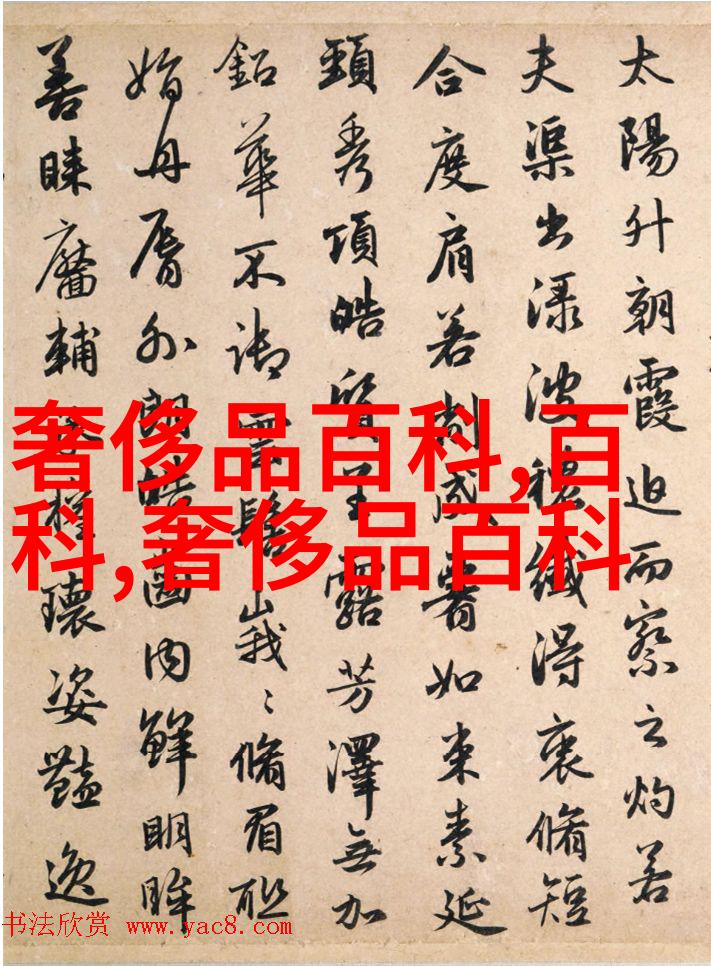 太陽升朝霞迫而察之灼若
夫渠出渌波穠纖得衷脩短
合度肩若削成要如束素延
頸秀項皓質呈露芳澤無加
鉛華不御雲髻峩〻脩眉聯
娟丹脣外朗皓齒内鮮明眸
善睞靨輔承權瓌姿豔逸
奢侈品百科,百
科,奢侈品百科
书法欣赏 www.yac8.com